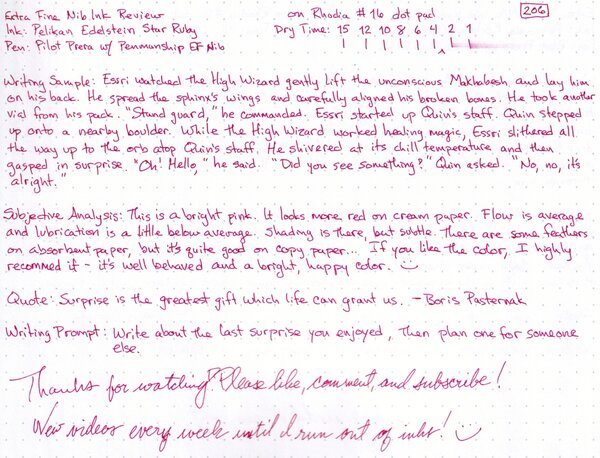 Extra Fine Nib Ink Review on Rhodia #16 dot pad 206
Ink: Pelikan Edelstein Star Ruby Dry Time: 15 12 10 8 6 4 2 1
Pen: Pilot Prera w/ Penmanship EF Nib
Writing Sample: Essri watched the High Wizard gently lift the unconscious Makhabesh and lay him
on his back. He spread the sphinx's wings and carefully aligned his broken bones. He took another
vial from his pack. "Stand guard," he commanded. Essri started up Quin's staff. Quin stepped
up onto a nearby boulder. While the High Wizard worked healing magic, Essri slithered all
the way up to the orb atop Quin's staff. He shivered at its chill temperature and then
gasped in surprise. "Oh! Hello," he said. "Did you see something?" Quin asked. "No, no, it's
alright."
Subjective Analysis: This is a bright pink. It looks more red on cream paper. Flow is average
and lubrication is a little below average. Shading is there, but subtle. There are some feathers
on absorbent paper, but it's quite good on copy paper... If you like the color, I highly
recommed it - it's well behaved and a bright, happy color.
Quote: Surprise is the greatest gift which life can grant us. - Boris Pasternak
Writing Prompt: Write about the last surprise you enjoyed, Then plan one for someone
else.
Thanks for watching! Please like, comment, and subscribe!
New videos every week until I run out of inks!